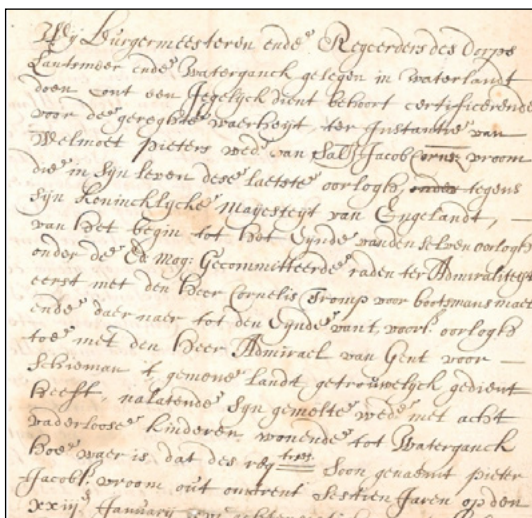 Wij Burgermeesteren ende Regeerders des Dorps
Lantsmeer ende Waterganck gelegen in Waterlandt
doen cont een Jegelijck dient behoort certificerende
voor de gereghte waerheijt, ter Instantie van
Welmoet Pieters wed. van Sal: Jacob Cornsz vroom
die in sijn leven dese laetste oorlogh, tegens
sijn Konincklijcke Majesteyt van Engelandt, —
van het begin tot het Eynde vanden selven oorlogh
onder de Ed. Mog: Gecommitteerde raden ter Admiraliteyt
eerst met den heer Cornelis Tromp voor bootsmans maet
ende daer naer tot den Eynde van't voors. oorlogh
toe met den heer Admirael van Gent voor —
schieman 't gemeene landt getrouwelijck gedient
heeft, nalatende sijn wede met acht
vaderloose kinderen, wonende tot Waterganck
hoe waer is, dat des reqtres Soon genaemt pieter
Jacobs. vroom out omtrent sestien Jaren op den
xxiij Januarij